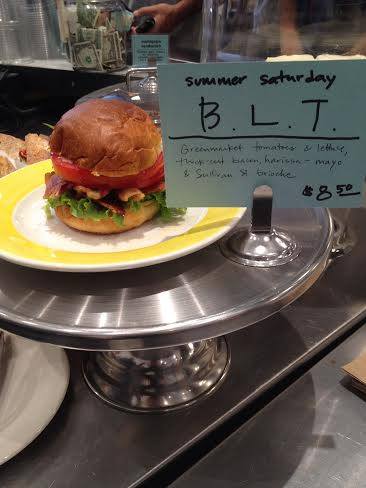 summer saturday
B. L. T.
Greenmarket tomatoes & lettuce,
thick-cut bacon, harissa-mayo
& Sullivan St brioche
$8 50